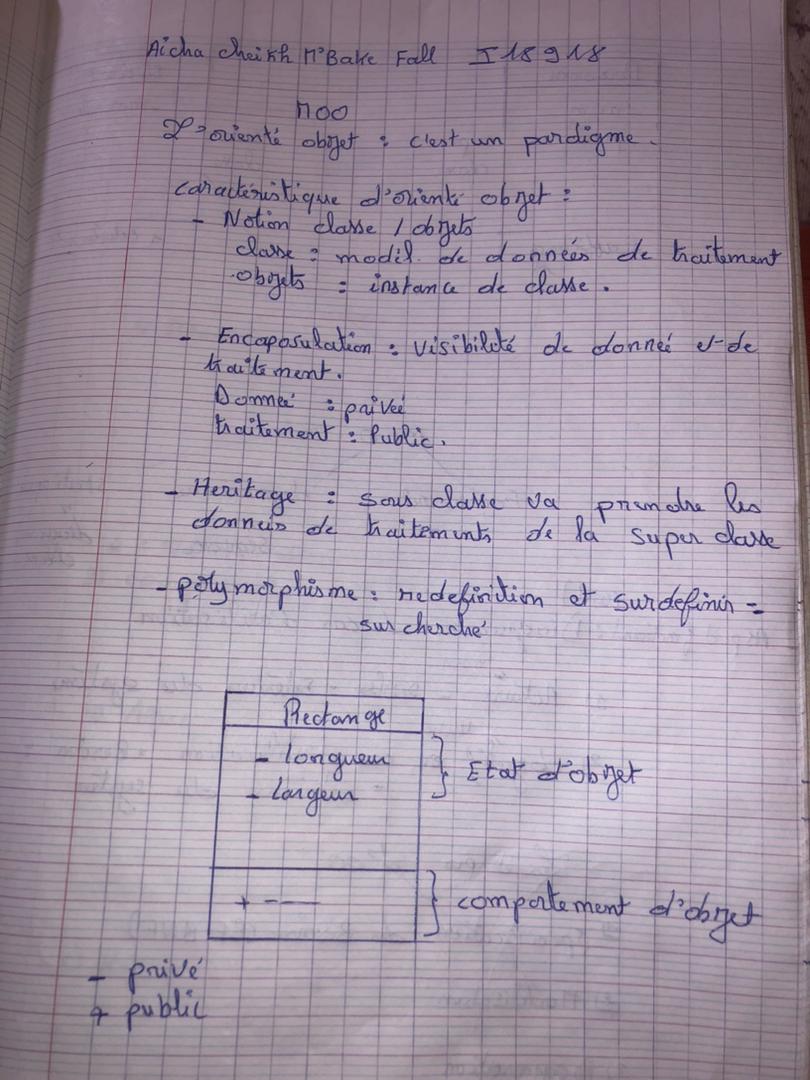 Aicha cheikh M'Bake Fall I18918
MOO
L'orienté objet : c'est un pardigme.
caractéristique d'orienté objet :
- Notion classe / objets
classe : modél. de données de traitement
objets = instance de classe.
- Encaposulation : visibilité de donneé et de
traitement.
Donneé : priveé
traitement : Public.
- Heritage : sous classe va prendre les
donneés de traitements de la super classe
- polymorphisme : redefinition et surdefinir =
sus cherché
Rectange
- longueur
- largeur
} Etat d'objet
+ ----
} comportement d'objet
- privé
+ public